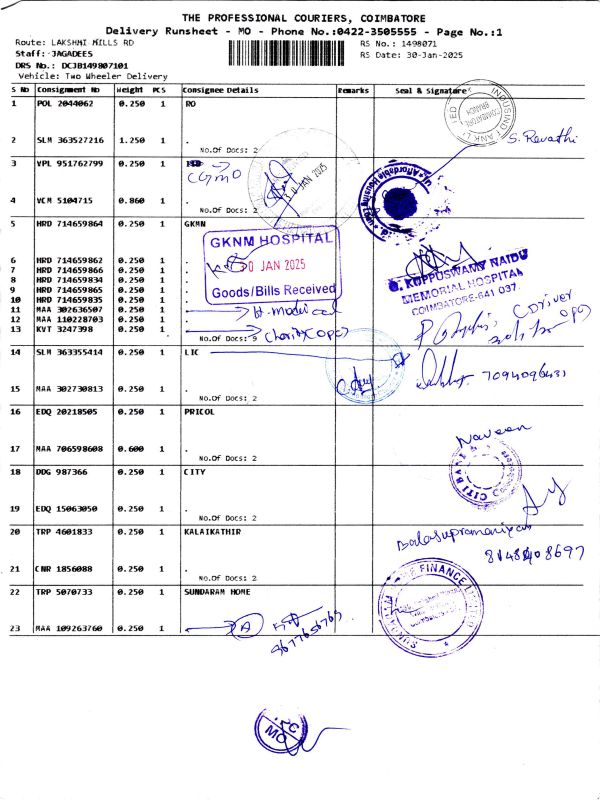 THE PROFESSIONAL COURIERS, COIMBATORE
Delivery Runsheet - MO - Phone No.:0422-3505555 - Page No.:1
Route: LAKSHMI MILLS RD
RS No.: 1498071
Staff: JAGADEES
RS Date: 30-Jan-2025
DRS No.: DCJB149807101
Vehicle: Two Wheeler Delivery
S No Consignment No Weight PCS Consignee Details Remarks Seal & Signature
1 POL 2044062 0.250 1 RO
INDUSIND BANK LTD
COIMBATORE BRANCH
2 SLM 363527216 1.250 1 .
S. Revathi
No.Of Docs: 2
3 VPL 951762799 0.250 1
CGMO
JAN 2025
4 VCM 5104715 0.860 1 .
No.Of Docs: 2
5 HRD 714659864 0.250 1 GKMN
GKNM HOSPITAL
30 JAN 2025
Goods/Bills Received
6 HRD 714659862 0.250 1 .
7 HRD 714659866 0.250 1 .
8 HRD 714659834 0.250 1 .
9 HRD 714659865 0.250 1 .
10 HRD 714659835 0.250 1 .
G. KUPPUSWAMY NAIDU
MEMORIAL HOSPITAL
COIMBATORE-641 037.
11 MAA 302636507 0.250 1
12 MAA 110228703 0.250 1 .
13 KVT 3247398 0.250 1
No.Of Docs: 9
14 SLM 363355414 0.250 1 LIC
7094096431
15 MAA 302730813 0.250 1 .
No.Of Docs: 2
16 EDQ 20218505 0.250 1 PRICOL
Naveen
17 MAA 706598608 0.600 1 .
No.Of Docs: 2
CITI BANK
18 DDG 987366 0.250 1 CITY
19 EDQ 15063050 0.250 1 .
No.Of Docs: 2
20 TRP 4601833 0.250 1 KALAIKATHIR
21 CNR 1856088 0.250 1 .
No.Of Docs: 2
22 TRP 5070733 0.250 1 SUNDARAM HOME
FINANCE LIMITED
23 MAA 109263760 0.250 1
9677656769
MO